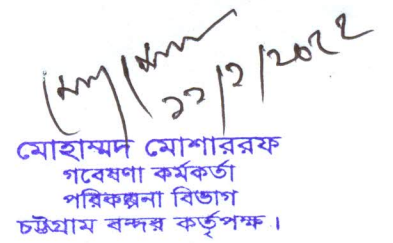 মোহাম্মদ মোশাররফ
গবেষণা কর্মকর্তা
পরিকল্পনা বিভাগ
চট্টগ্রাম বন্দর কর্তৃপক্ষ।